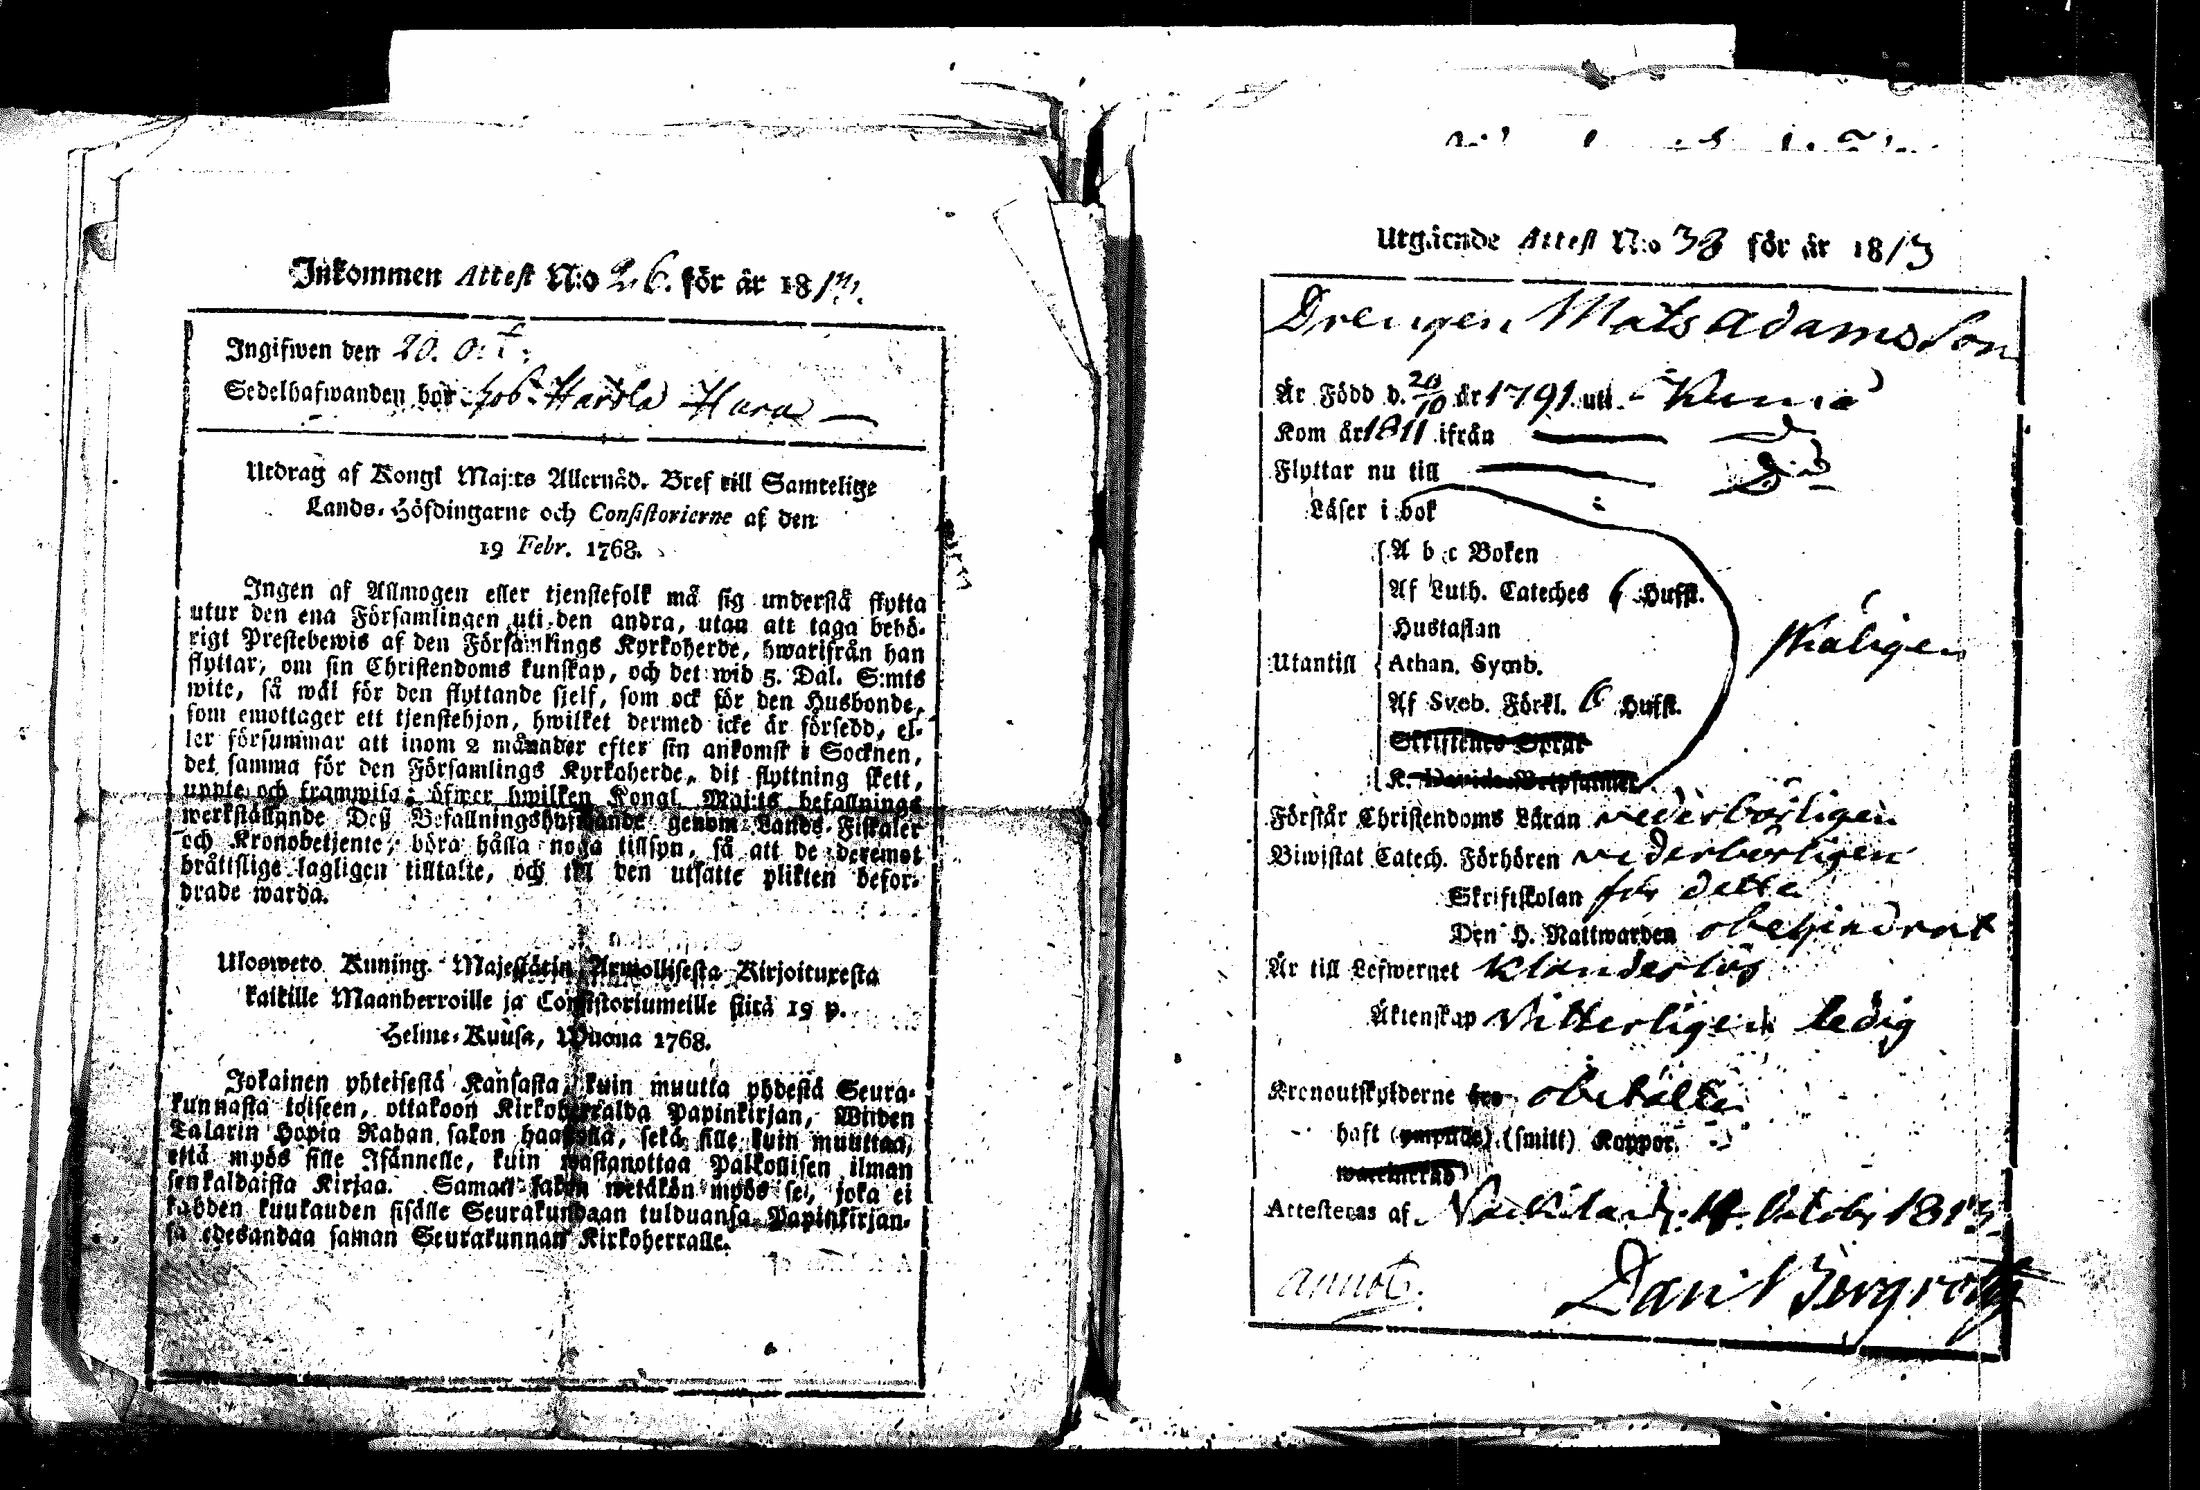 Inkommen Attest N:o 26. för år 1813.
Ingifwen den 20. Oct:
Sedelhafwanden bor hos Harola Hara
Utdrag af Kongl Maj:ts Allernåd. Bref till Samtelige
Lands-Höfdingarne och Consistorierne af den
19 Febr. 1768.
Ingen af Allmogen eller tjenstefolk må sig understå flytta
utur den ena Församlingen uti den andra, utan att taga behö-
rigt Prestebewis af den Församlings Kyrkoherde, hwarifrån han
flyttar, om sin Christendoms kunskap, och det wid 5. Dal. S:mts
wite, så wäl för den flyttande sjelf, som ock för den Husbonde,
som emottager ett tjenstehjon, hwilket dermed icke är försedd, el-
ler försummar att inom 2 månader efter sin ankomst i Socknen,
det samma för den Församlings Kyrkoherde, dit flyttning skett,
uppte och framwisa; öfwer hwilken Kongl Maj:ts befallnings
werkställande Deß Befallningshafwande genom Lands-Fiskaler
och Kronobetjente, böra hålla noga tillsyn, så att de deremot
bråttslige lagligen tilltalte, och till den utsatte plikten befor-
drade warda.
Ulosweto Kuning. Majestätin Armollisesta Kirjoituxesta
kaikille Maanherroille ja Consistoriumeille siitä 19 p.
Helme-Kuusa, Wuona 1768.
Jokainen yhteisestä Kansasta, kuin muutta yhdestä Seura-
kunnasta toiseen, ottakoon Kirkoherralda Papinkirjan, Wiiden
Talarin Hopia Rahan sakon haastolla, sekä sille kuin muuttaa,
että myös sille Isännelle, kuin wastanottaa Palkollisen ilman
senkaldaista Kirjaa. Saman sakon wetäkön myös se, joka ei
kahden kuukauden sisälle Seurakundaan tulduansa Papinkirjan-
sa edesandaa saman Seurakunnan Kirkoherralle.
Utgående Attest N:o 38 för år 1813
Drengen Mats Adams Son
Är Född d. 20/10 år 1791 uti
Kom år 1811 ifrån
Flyttar nu till
Läser i bok
A b c Boken
Af Luth. Cateches 6 Hufst.
Hustaflan
Utantill Athan. Symb.
Af Sveb. Förkl. 6 Hufst.
K. Davids Botpsalmer
Förstår Christendoms Läran vederbörligen
Biwistat Catech. Förhören vederbörligen
Skriftskolan för detta
Den H. Nattwarden obehindrat
Är till Lefwernet Klanderlös
Äktenskap Vitterligen ledig
Kronoutskylderne obetalte
haft (ympade) (smitt) Koppor.
Attesteras af 14 October 1813
annot.
Dan:l Bergroth